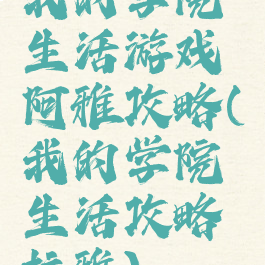 我的学院
生活游戏
阿雅攻略(
我的学院
生活攻略
雅)